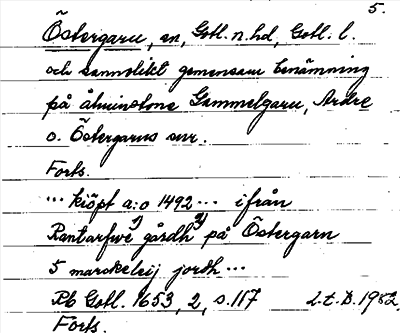 5.
Östergarn, sn, Gotl. n. hd, Gotl. l.
och sannolikt gemensam benämning
på åtminstone Gammelgarn, Ardre
o. Östergarns snr.
Forts.
... kiöpt a:o 1492 ... ifrån
Rantarfwe 1) gårdh 2) på Östergarn
5 marckeleij jordh ...
Rb Gotl. 1653, 2, s. 117 L.t.B. 1982.
Forts.